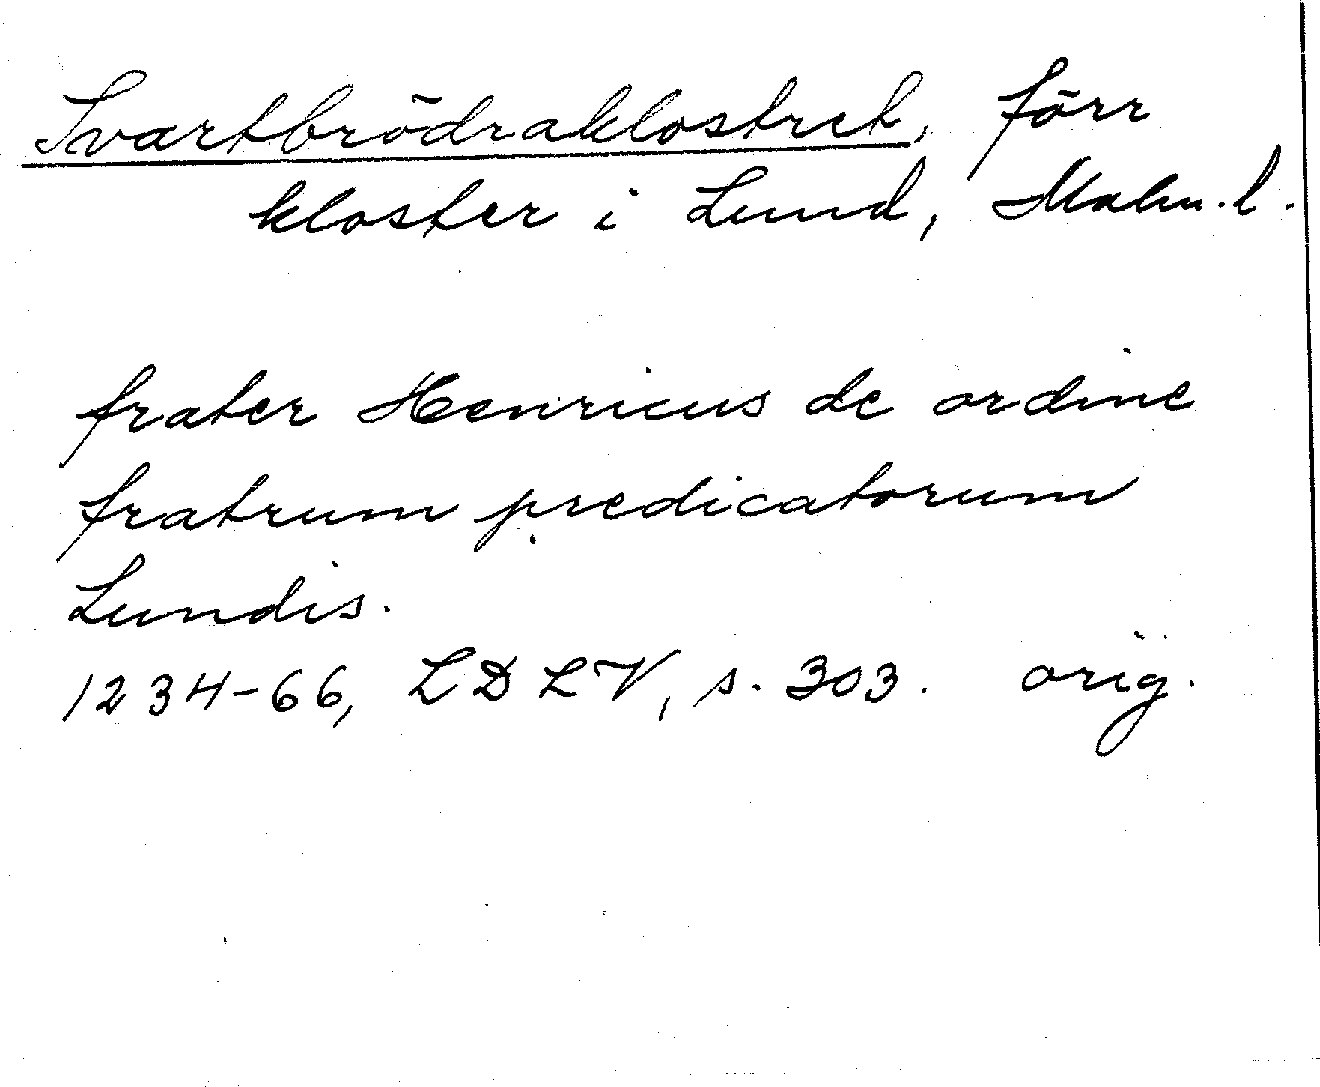 Svartbrödraklostret, förr
kloster i Lund, Malm. l.
frater Henricus de ordine
fratrum predicatorum
Lundis.
1234-66, LDLV, s. 303. orig.